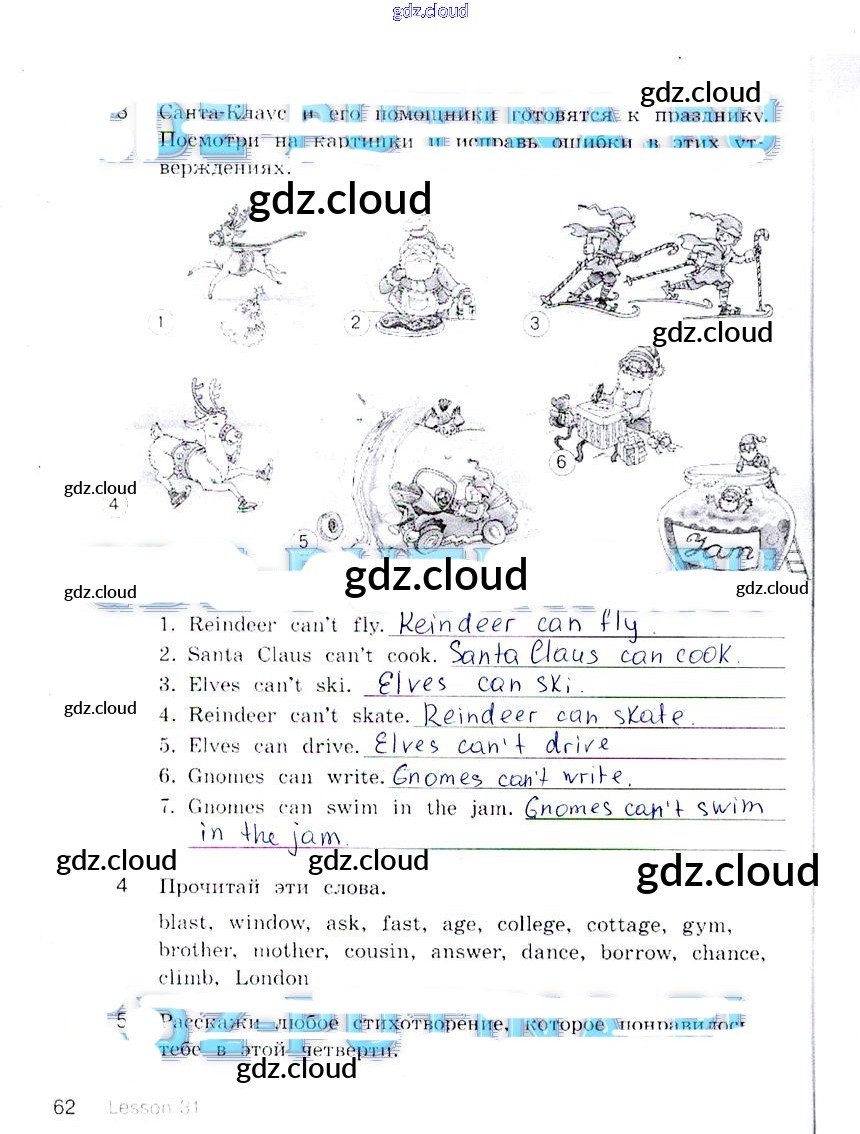 gdz.cloud
gdz.cloud
3 Санта-Клаус и его помощники готовятся к празднику.
Посмотри на картинки и исправь ошибки в этих ут-
верждениях.
gdz.cloud
1
2
3
gdz.cloud
6
gdz.cloud
4
5
Jam
gdz.cloud
gdz.cloud
gdz.cloud
1. Reindeer can't fly. Reindeer can fly.
2. Santa Claus can't cook. Santa Claus can cook.
3. Elves can't ski. Elves can ski.
gdz.cloud
4. Reindeer can't skate. Reindeer can skate.
5. Elves can drive. Elves can't drive
6. Gnomes can write. Gnomes can't write.
7. Gnomes can swim in the jam. Gnomes can't swim
in the jam.
gdz.cloud gdz.cloud gdz.cloud
4 Прочитай эти слова.
blast, window, ask, fast, age, college, cottage, gym,
brother, mother, cousin, answer, dance, borrow, chance,
climb, London
5 Расскажи любое стихотворение, которое понравилось
тебе в этой четверти.
gdz.cloud
62 Lesson 31